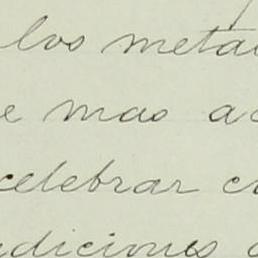 los meta
e mas a
celebrar c
diciones